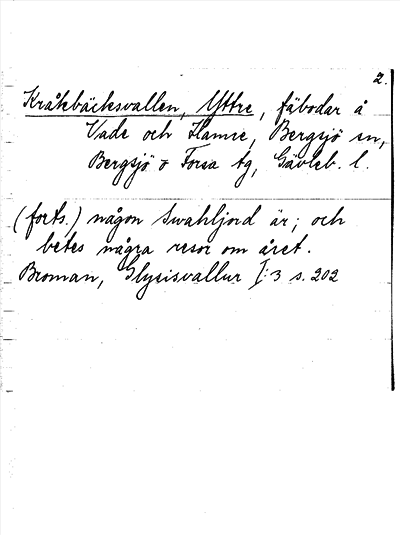 2.
Kråkbäcksvallen, Yttre, fäbodar å
Vade och Hamre, Bergsjö sn,
Bergsjö o Forsa tg, Gävleb. l.
(forts.) någon Swahljord är; och
betes några resor om året.
Broman, Glysisvallur I:3 s. 202